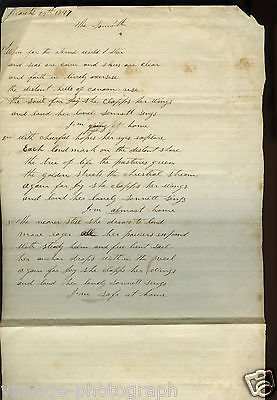 March 19th 1847
The Sonnett
When for the eternal world I steer
and seas are calm and skies are clear
and faith in lively exercise
the distant hills of canaan rise
The Soul for joy she clapps her wings
and loud her lovely Sonnett sings
I'm going at home
2nd with cheerful hopes her eyes explore
Each land mark on the distant shore
The tree of life the pastures green
the golden streets the christial stream
again for joy she clapps her wings
and loud her lovely Sonnett sings
I'm almost home
3d The nearer still she draws to land
more eager all her powers expand
with steady helm and free bent sail
her anchor drops within the veil
again for joy she clapps her wings
and loud her lovely Sonnett sings
I'm Safe at home
vintage-photograph